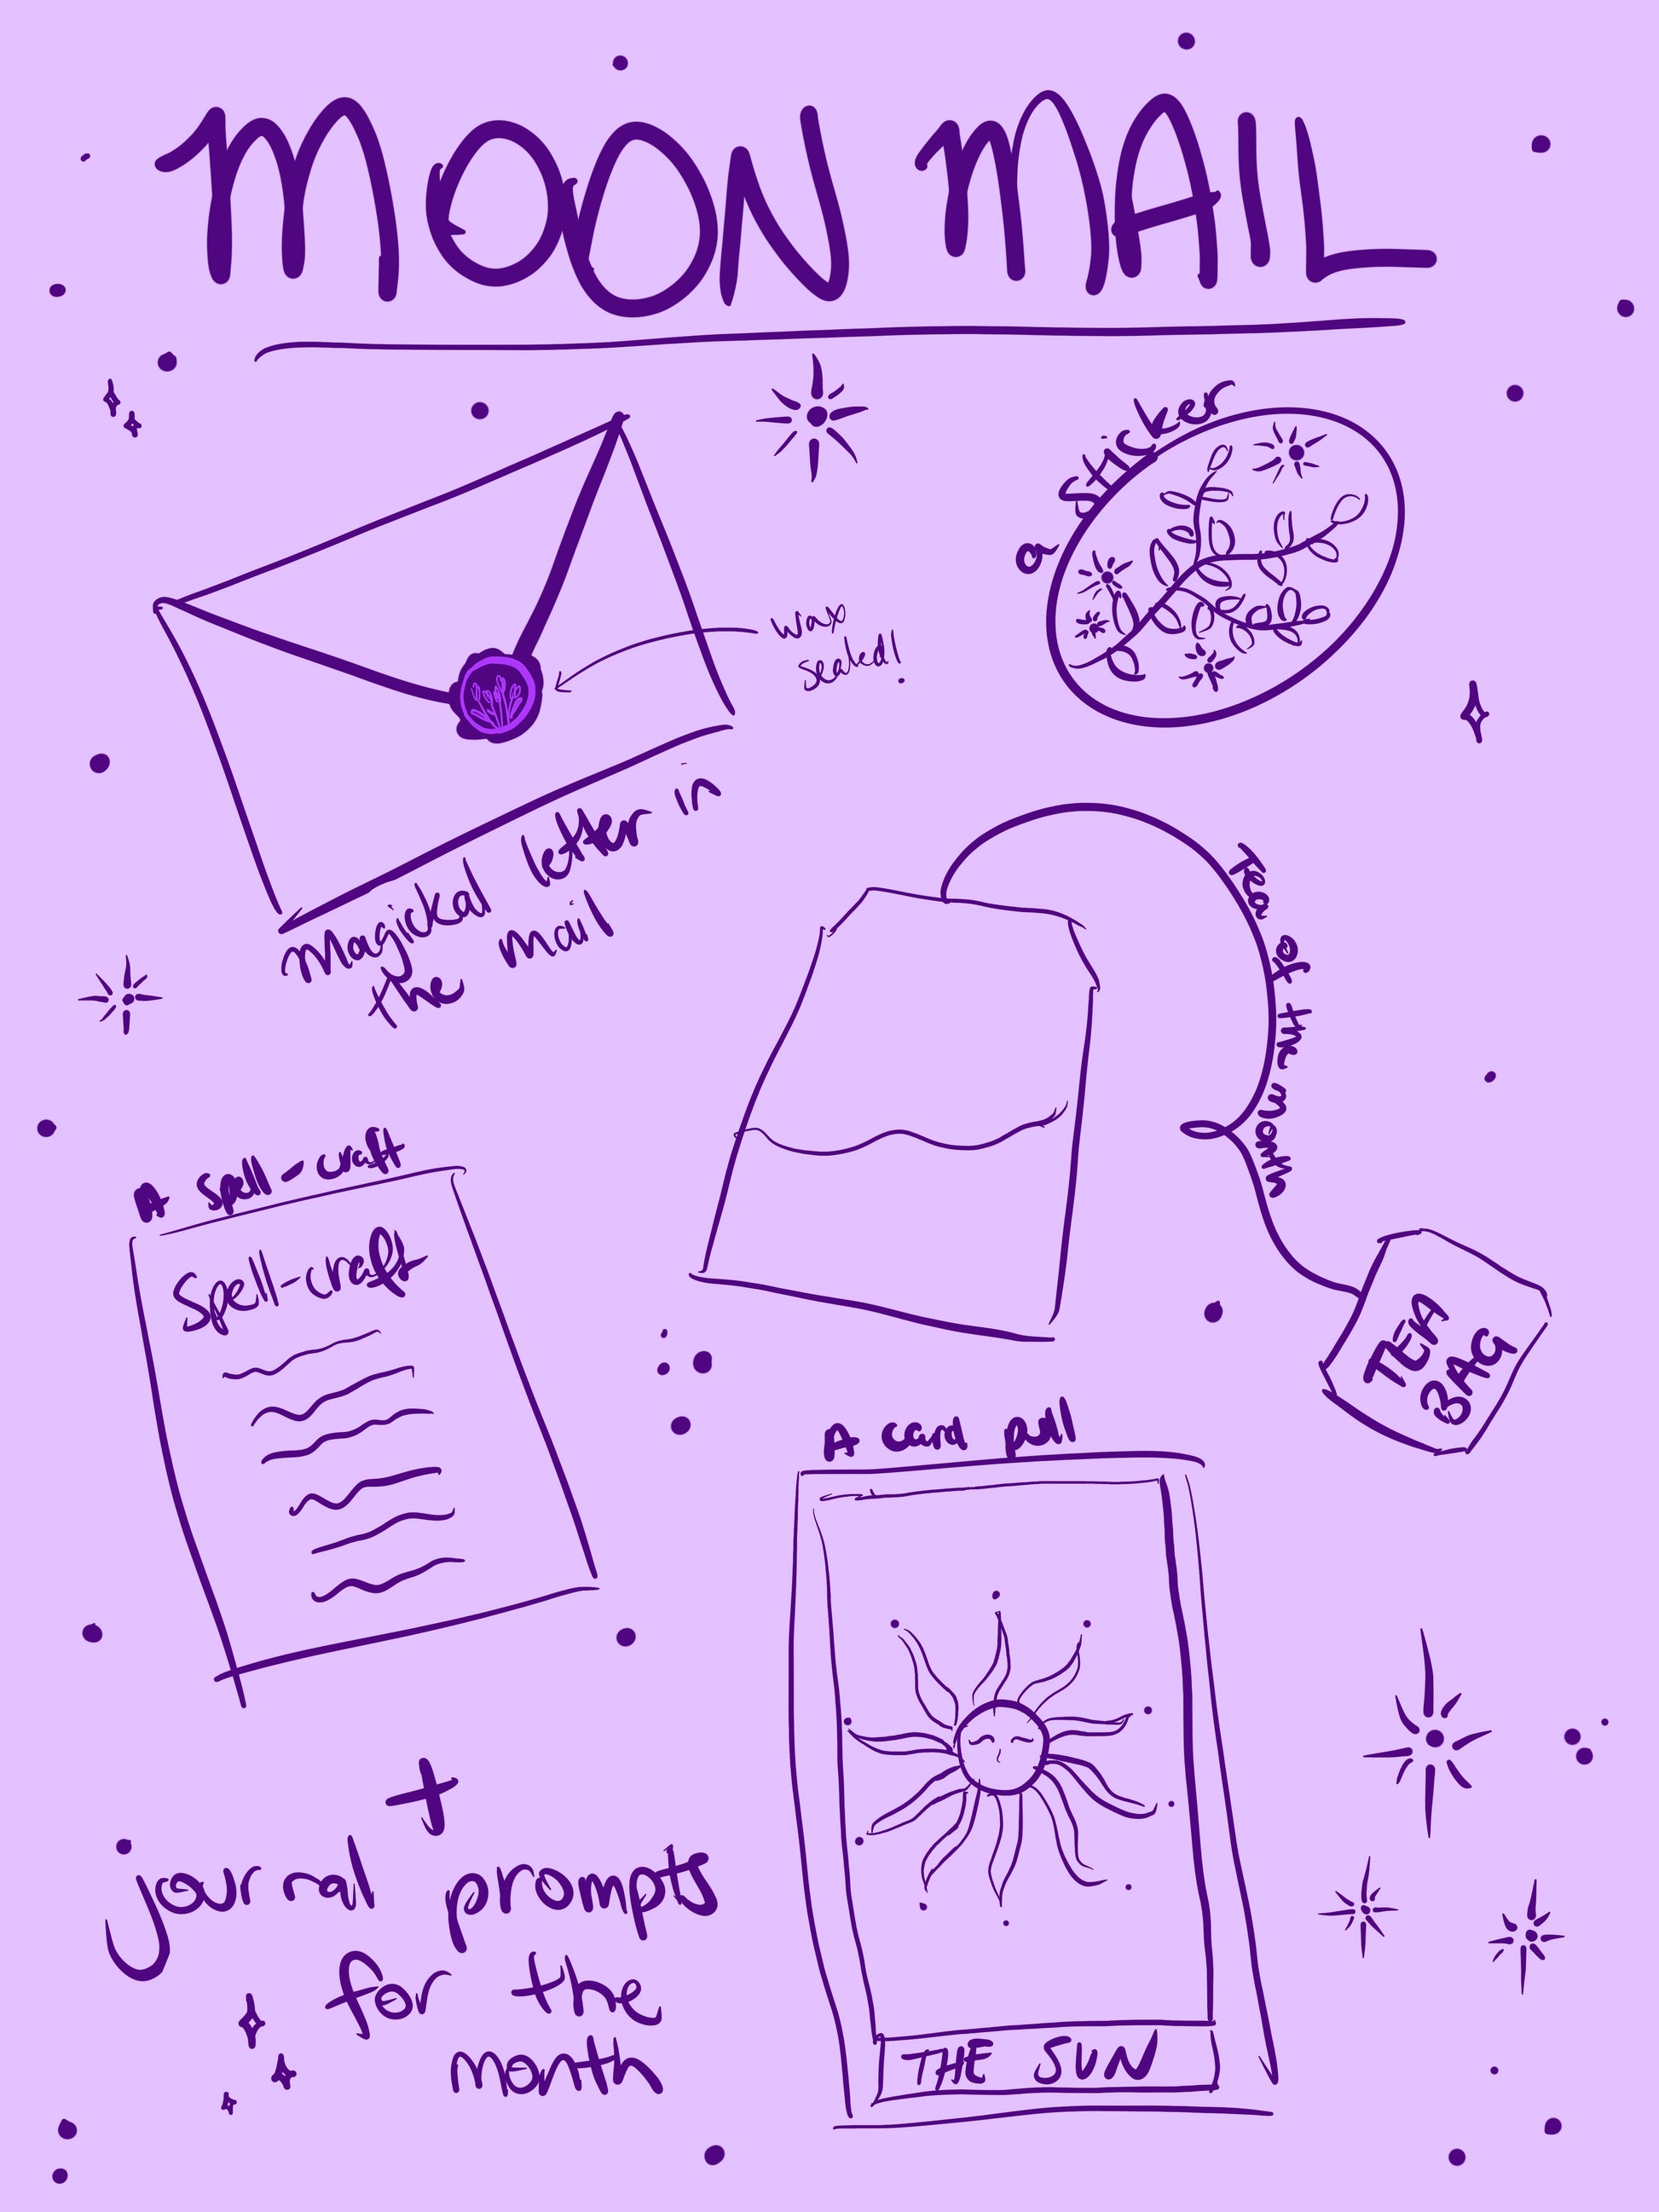 MOON MAIL
a sticker
wax
sealed!
Magickal letter in
the mail
Tea of the Month
TEA
BAG
A spell-craft
Spell-craft
A card pull
THE SUN
+
journal prompts
for the
month